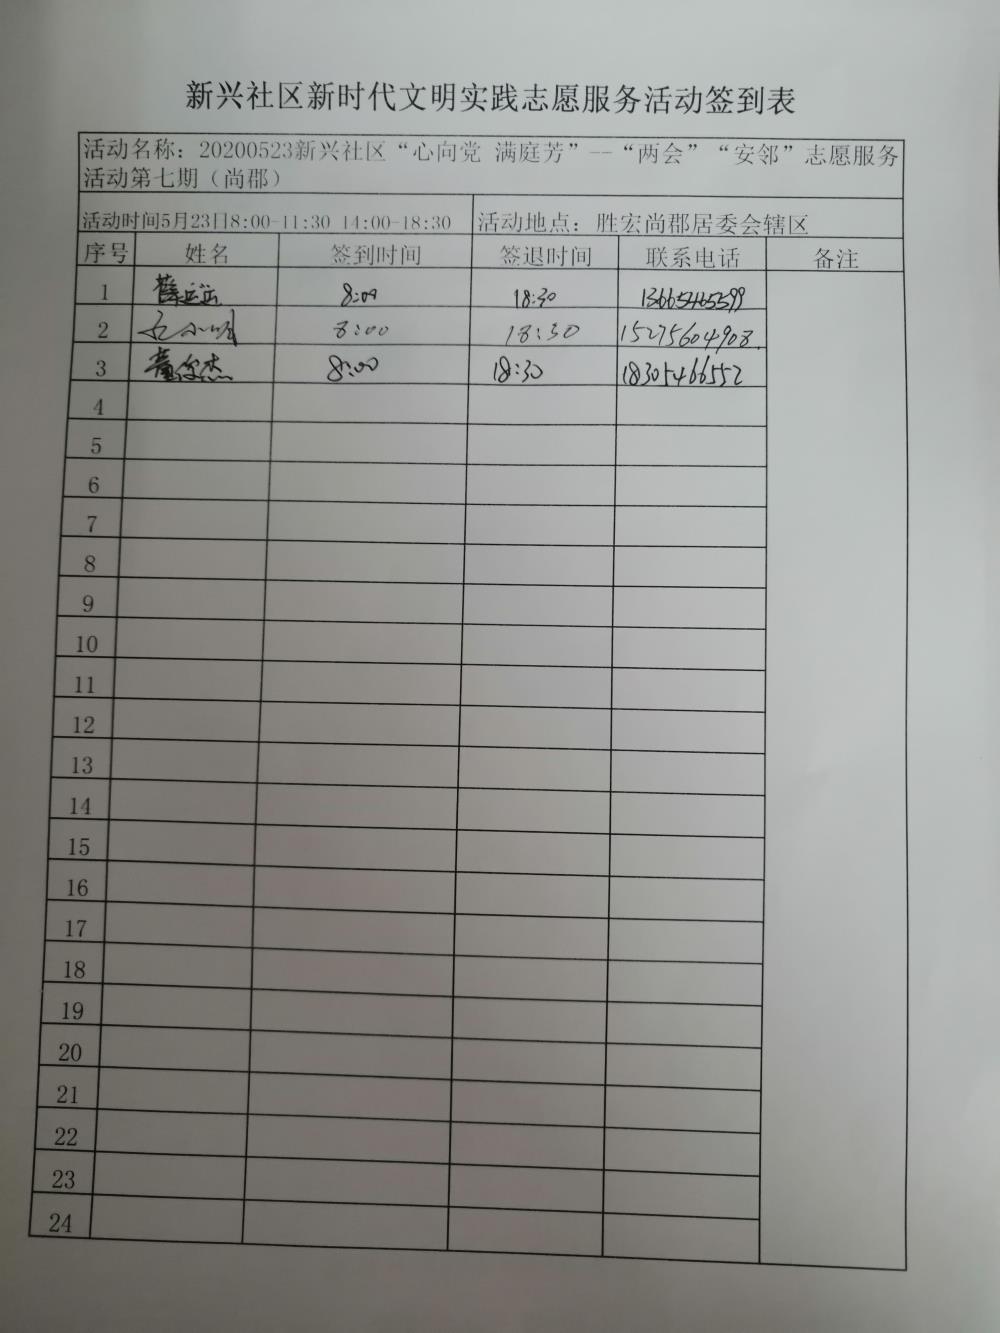 新兴社区新时代文明实践志愿服务活动签到表
活动名称：20200523新兴社区“心向党 满庭芳”--“两会”“安邻”志愿服务
活动第七期（尚郡）
活动时间5月23日8:00-11:30 14:00-18:30 活动地点：胜宏尚郡居委会辖区
序号 姓名 签到时间 签退时间 联系电话 备注
1 8:00 18:30 13665465599
2 8:00 18:30 15275604908
3 8:00 18:30 18305466552
4
5
6
7
8
9
10
11
12
13
14
15
16
17
18
19
20
21
22
23
24